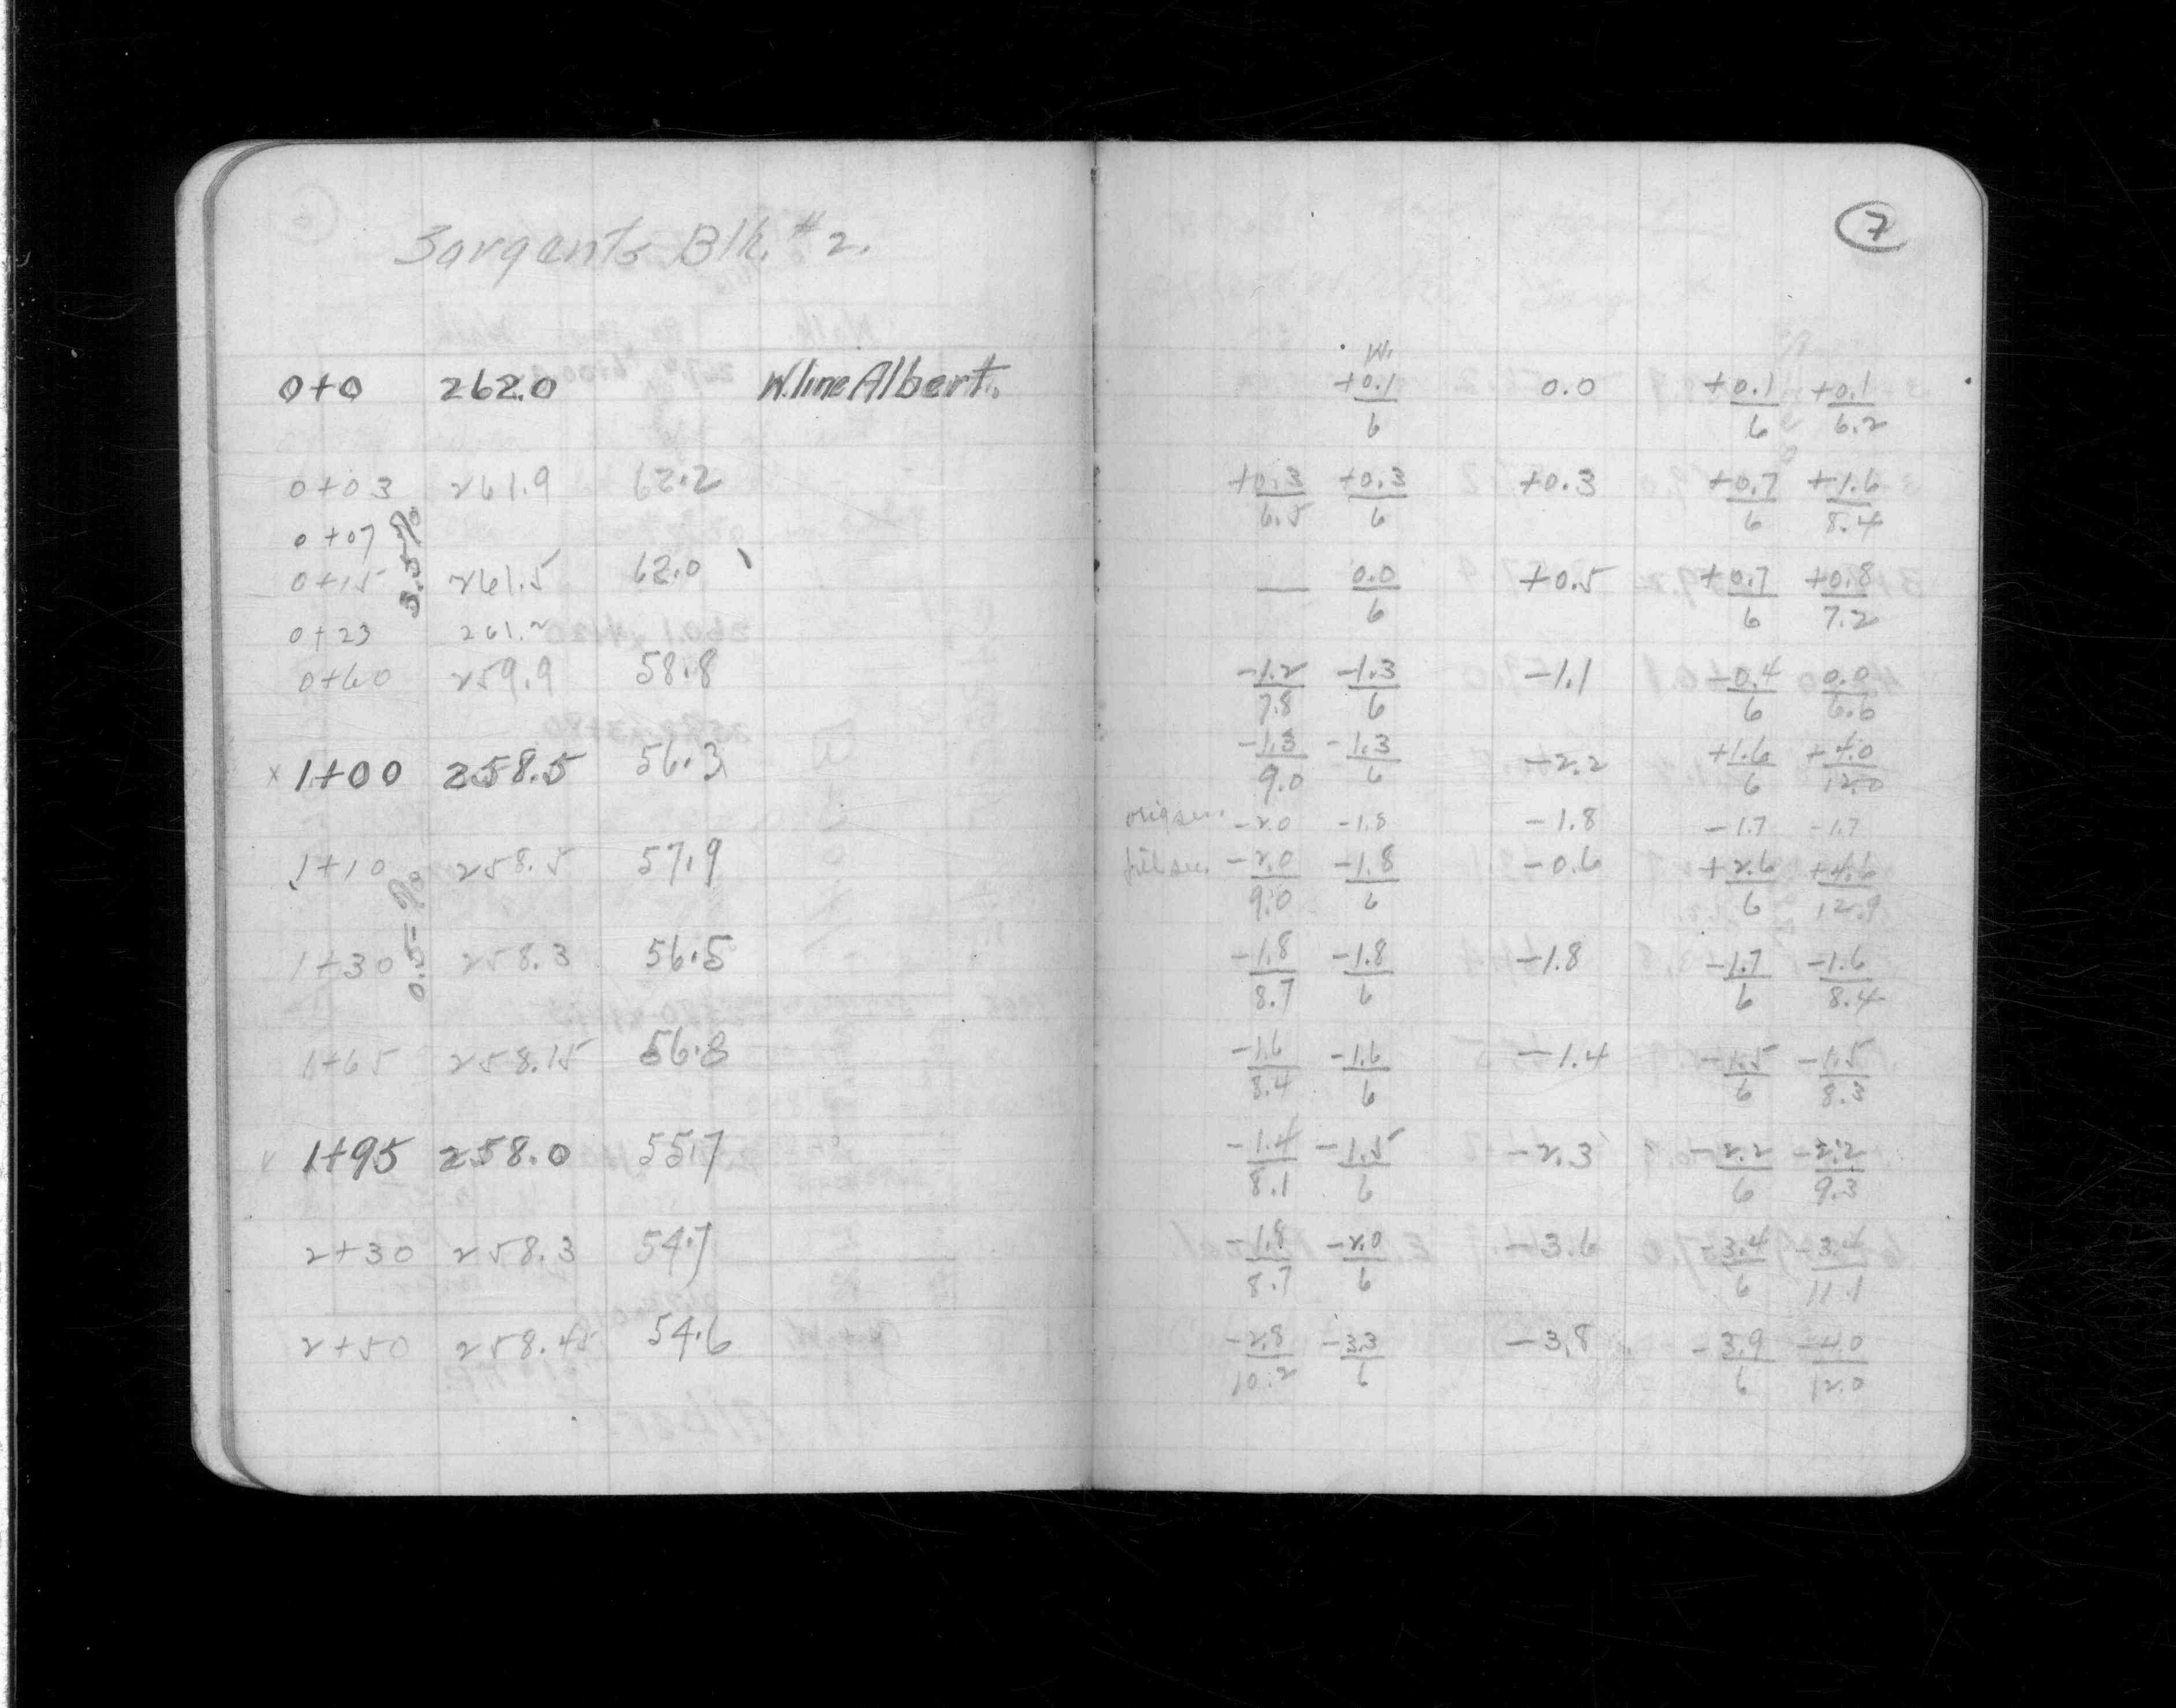 Sargents Blk. #2.
0+0 262.0 W. line Albert.
0+03 261.9 62.2
0+07
3.5%
0+15 261.5 62.0
0+23 261.2
0+60 259.9 58.8
x 1+00 258.5 56.3
1+10 258.5 57.9
0.5%
1+30 258.3 56.5
1+65 258.15 56.8
1+95 258.0 55.7
2+30 258.3 54.7
2+50 258.45 54.6
7
W.
+0.1 0.0 +0.1 +0.1
6 6 6.2
+0.3 +0.3 +0.3 +0.7 +1.6
6.5 6 6 8.4
— 0.0 +0.5 +0.7 +0.8
6 6 7.2
-1.2 -1.3 -1.1 -0.4 0.0
7.8 6 6 6.6
-1.3 -1.3 -2.2 +1.6 +4.0
9.0 6 6 12.0
orig sec. -2.0 -1.8 -1.8 -1.7 -1.7
-2.0 -1.8 -0.6 +2.6 +4.6
9.0 6 6 12.9
-1.8 -1.8 -1.8 -1.7 -1.6
8.7 6 6 8.4
-1.6 -1.6 -1.4 -1.5 -1.5
8.4 6 6 8.3
-1.4 -1.5 -2.3 -2.2 -2.2
8.1 6 6 9.3
-1.8 -2.0 -3.6 -3.4 -3.4
8.7 6 6 11.1
-2.8 -3.3 -3.8 -3.9 -4.0
10.2 6 6 12.0